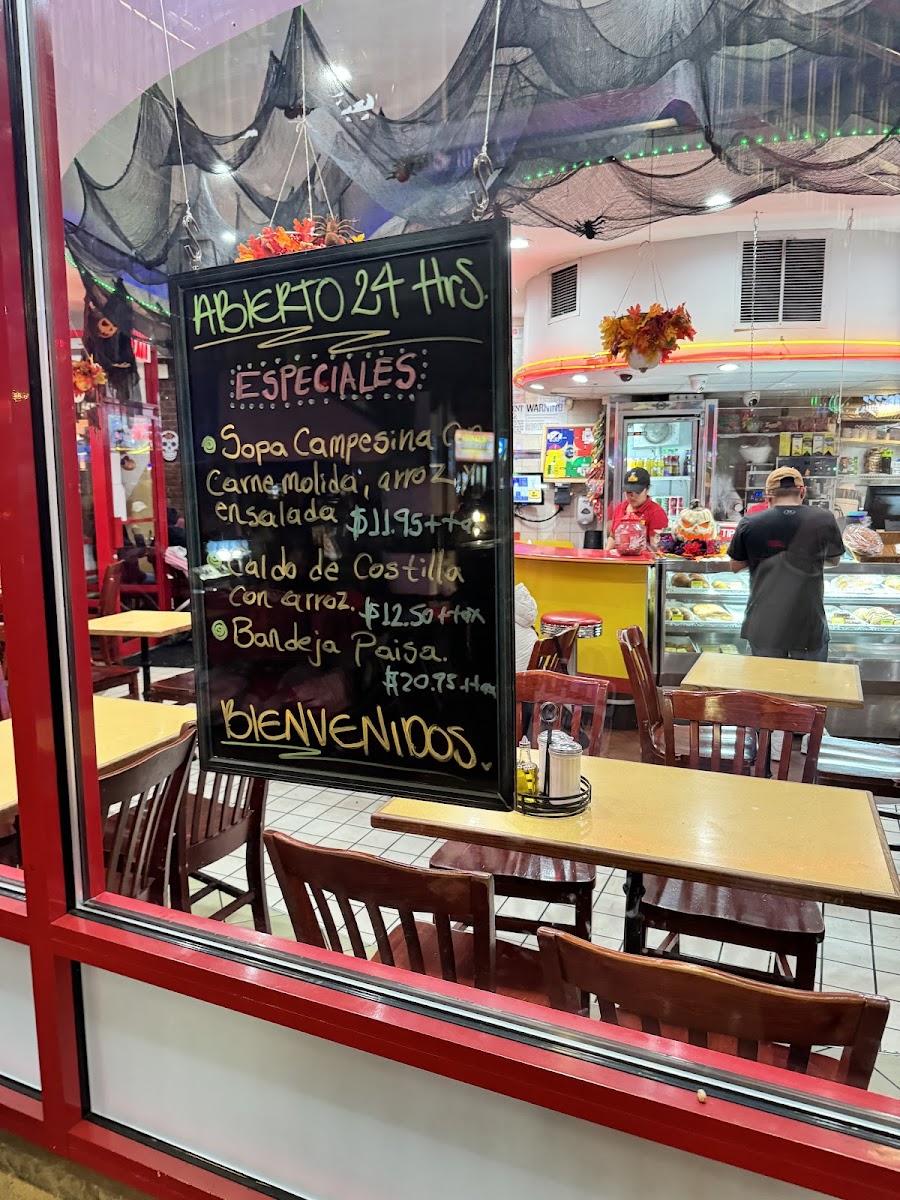 ABIERTO 24 Hrs.
ESPECIALES
Sopa Campesina con
carne molida, arroz y
ensalada $11.95+tax
Caldo de Costilla
con arroz. $12.50+tax
Bandeja Paisa.
$20.95+tax
BIENVENIDOS.
WARNING